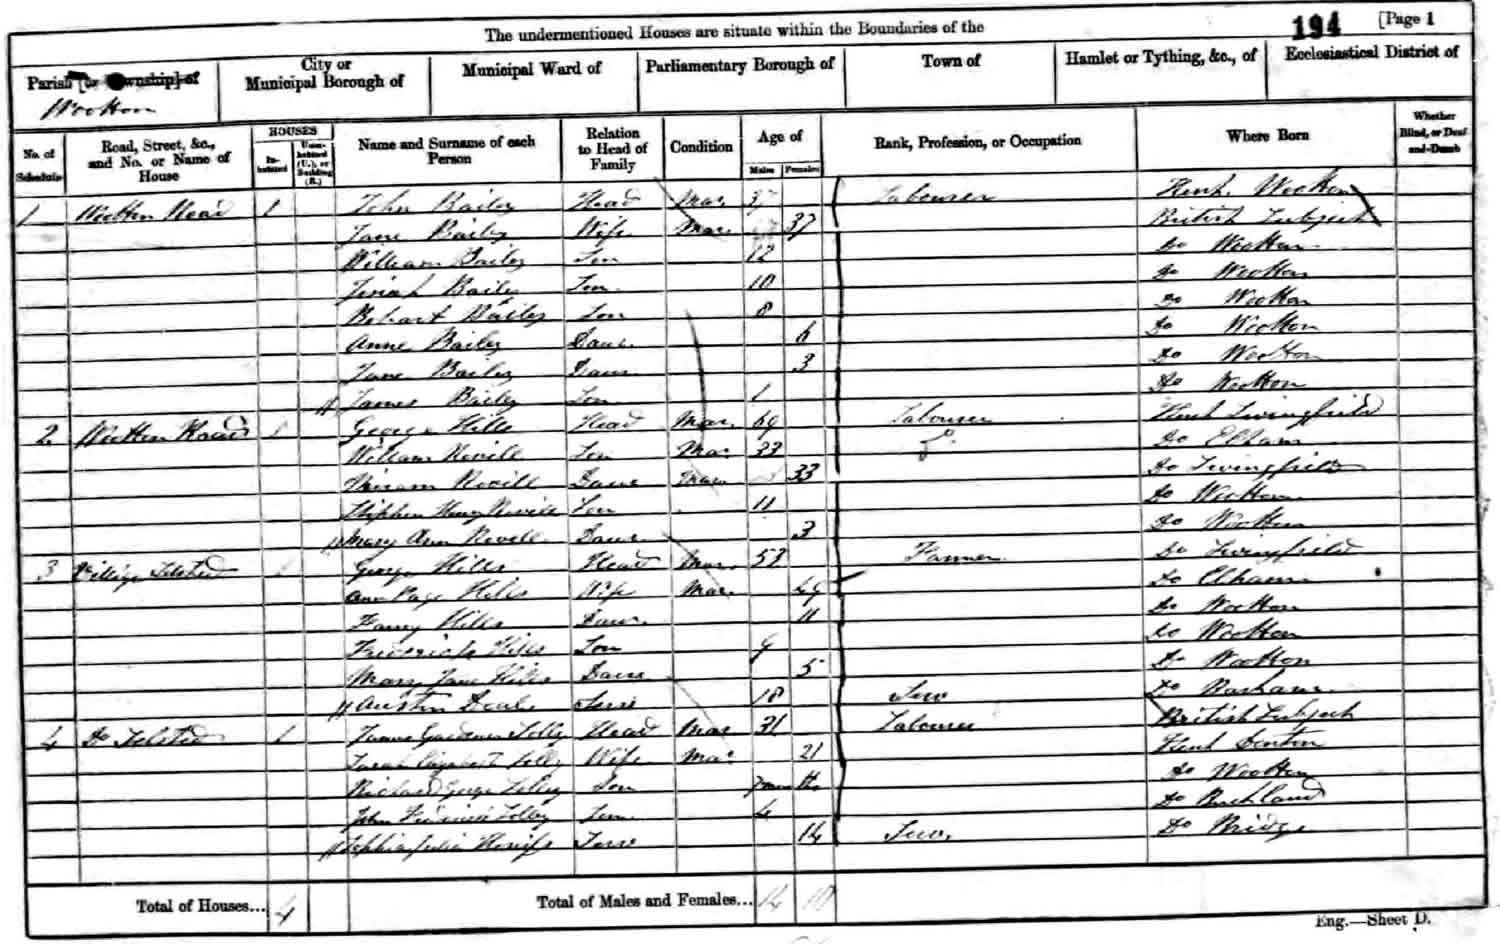 The undermentioned Houses are situate within the Boundaries of the
194 [Page 1
Parish [or Township] of
City or Municipal Borough of
Municipal Ward of
Parliamentary Borough of
Town of
Hamlet or Tything, &c., of
Ecclesiastical District of
Wootton
No. of Schedule
Road, Street, &c., and No. or Name of House
HOUSES
Inhabited
Uninhabited (U.), or Building (B.)
Name and Surname of each Person
Relation to Head of Family
Condition
Age of
Males
Females
Rank, Profession, or Occupation
Where Born
Whether Blind, or Deaf-and-Dumb
1 Wootton Road 1 John Bailey Head Mar 37 Labourer Kent Wootton
Jane Bailey Wife Mar 37 British Subject
William Bailey Son 12 Do Wootton
Josiah Bailey Son 10 Do Wootton
Robart Bailey Son 8 Do Wootton
Anne Bailey Daur 6 Do Wootton
Jane Bailey Daur 3 Do Wootton
James Bailey Son 1 Do Wootton
2 Wootton Road 1 George Hills Head Mar 69 Labourer Kent Swingfield
William Revill Son Mar 33 Do Elham
Miriam Revill Daur Mar 33 Do Swingfield
Stephen Henry Revill Son 11 Do Wootton
Mary Ann Revell Daur 3 Do Wootton
3 Village 1 George Hills Head Mar 53 Farmer Do Swingfield
Ann Page Hills Wife Mar 49 Do Elham
Fanny Hills Daur 11 Do Wootton
Frederick Hills Son 9 Do Wootton
Mary Jane Hills Daur 5 Do Wootton
Austin Serv 18 Serv Do Barham
4 Do 1 Gardener Head Mar 31 Labourer British Subject
Sarah Elizabeth Wife Mar 21 Kent Denton
Richard George Son months Do Wootton
John Son 4 Do Buckland
Sophia Julia Serv 14 Serv Do Bridge
Total of Houses... 4
Total of Males and Females... 14 10
Eng.—Sheet D.